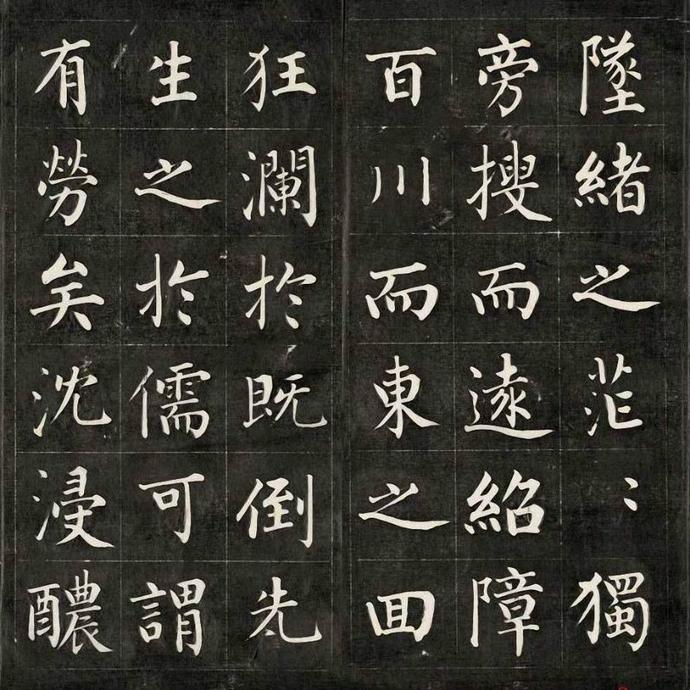 墜緒之茫〻獨
旁搜而遠紹障
百川而東之回
狂瀾於既倒先
生之於儒可謂
有勞矣沈浸醲